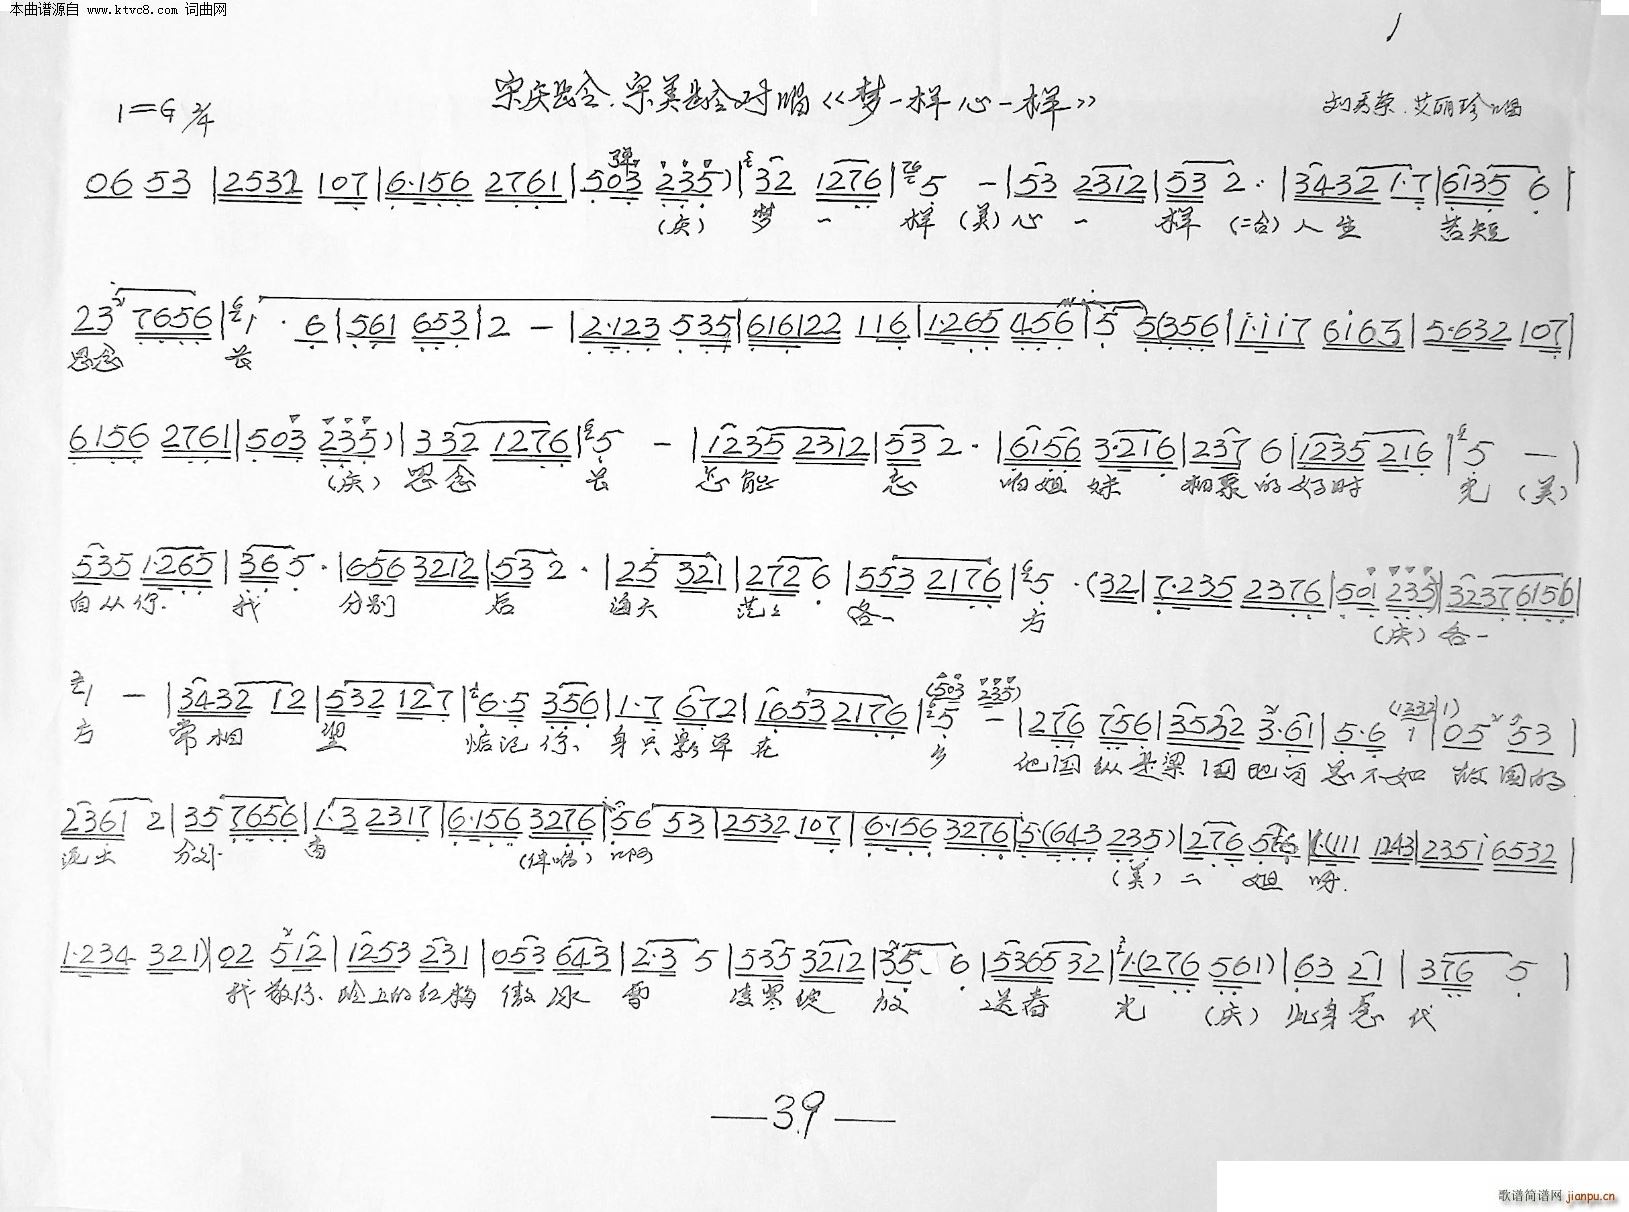 本曲谱源自 www.ktvc8.com 词曲网
1
宋庆龄、宋美龄对唱《梦一样心一样》
1=G 2/4
刘秀荣、艾丽珍唱
06 53 |2532 107|6·156 2761|503 235)|32 1276|5 -|53 2312|53 2·|3432 1·7|6135 6|
(庆) 梦 一 样 (美) 心 一 样 (二合) 人生 苦短
23 7656|1 · 6|561 653|2 -|2·123 535|616122 116|1·265 456|5 5(356|1·117 6163|5·632 107|
思念 长
6156 2761|503 235)|332 1276|5 -|1235 2312|53 2·|6156 3·216|237 6|1235 216|5 -|
(庆) 思念 长 怎能 忘 咱姐妹 相聚的好时 光 (美)
535 1·265|36 5·|656 3212|53 2·|25 321|2726|553 2176|5·(32|7·235 2376|501 235)|3237 6156|
自从你、我 分别 后 海天 茫茫 各一 方 (庆) 各一
1 -|3432 12|532 127|6·5 356|1·7 672|1653 2176|5 -|276 756|3532 3·61|5·6 1|05 53|
(503 235)
(12321)
方 常相 望 惦记你、身只影单在 乡 他国纵是梁园地 总不如 故国的
2361 2|35 7656|1·3 2317|6·156 3276|56 53|2532 107|6·156 3276|5·(643 235)|276 576|1·(111 1243|2351 6532|
泥土 分外 香 (伴唱) 啊 (美) 二 姐 呀
1·234 321)|02 512|1253 231|053 643|2·3 5|535 3212|35· 6|5365 32|1·(276 561)|63 21|376 5|
我敬你、岭上的红梅 傲冰 雪 凌寒绽 放 送春 光 (庆) 此身愿 代
—39—
歌谱简谱网 jianpu.cn